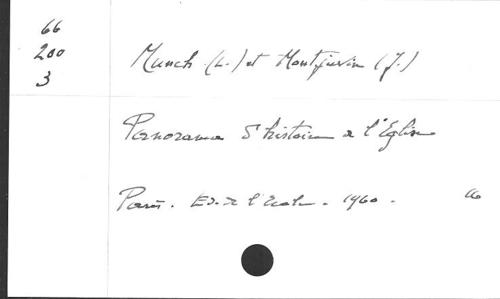 66
200
3
Munch (L.) et Montjuvin (J.)
Panorama d'histoire de l'Eglise
Paris. Ed. de l'Ecole. 1960.